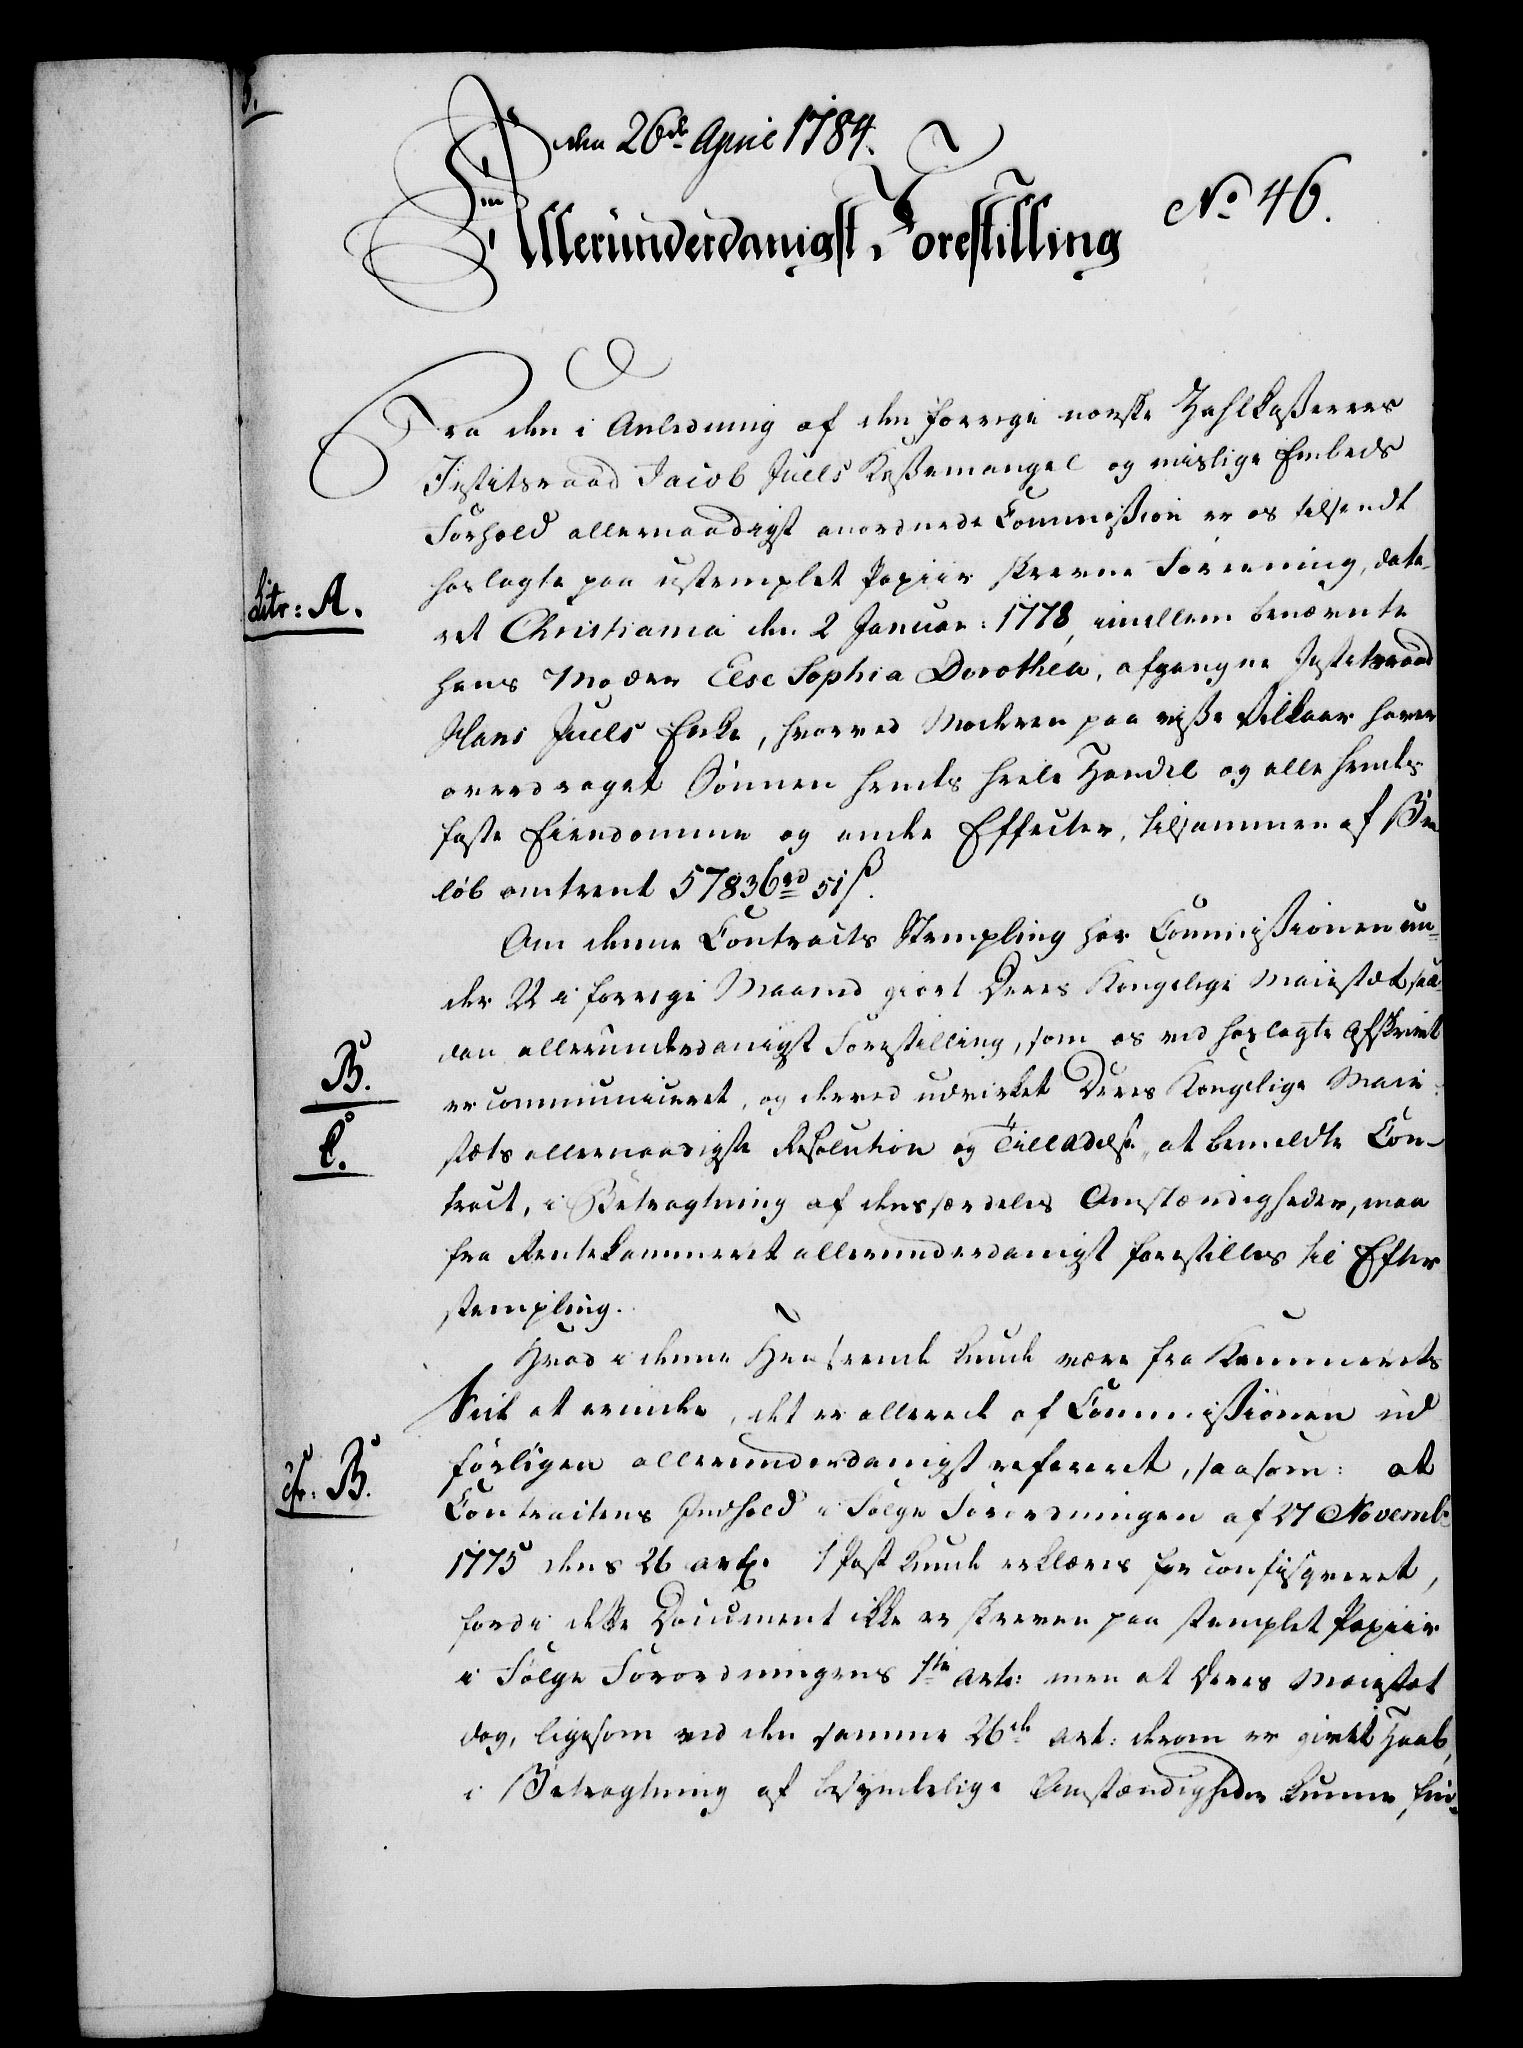 den 26de April 1784.
No 46.
Allerunderdanigst Forestilling
Fra den i Anledning af den forrige norske Zahlkasserers
Justitsraad Jacob Juels Kassemangel og mislige Embeds
Forhold allernaadigst anordnede Commission er os tilsendt
Litr: A.
hoslagte paa ustemplet Papiir skrevne Foreening, date-
ret Christiania den 2 Januar: 1778, imellem benævnte
hans Moder Else Sophia Dorothéa, afgangne Justitsraad
Hans Juels Enke, hvorved Moderen paa visse Vilkaar haver
overdraget Sönnen hendes heele Handel og alle hendes
faste Eiendomme og andre Effecter, tilsammen af Be
löb omtrent 57836rd 51 ß.
Om denne Contracts Stempling har Commissionen un-
der 22 i forrige Maaned giort Deres Kongelige Maiestæt saa-
dan allerunderdanigst Forestilling, som os ved hoslagte Afskrivt
B.
er communiceret, og derved udvirket Deres Kongelige Maie-
C.
stæts allernaadigste Resolution og Tilladelse, at bemeldte Con-
tract, i Betragtning af dens særdeles Omstændigheder, maa
fra Rentekammeret allerunderdanigst forestilles til Efter
stempling.
Hvad i denne Henseende kunde være fra Kammerets
Side at erindre, det er allerede af Commissionen ud
förligen allerunderdanigst refereret, saasom: at
cfr: B.
Contractens Indhold i Fölge Forordningen af 27 Novemb:
1775 dens 26 art: 1 Post kunde erklæres for confisqveret,
fordi dette Document ikke er skreven paa stemplet Papiir
i Fölge Forordningens 1ste art: men at Deres Maiestæt
dog, ligesom ved den samme 26de art: derom er givet Haab,
i Betragtning af besynderlige Omstændigheder kunne fin-